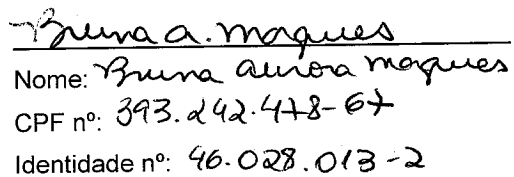 Bruna A. Marques
Nome: Bruna Aurora Marques
CPF nº: 393.242.478-67
Identidade nº: 46.028.013-2